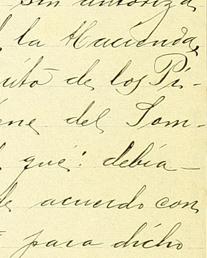 sin autoriza
la Hacienda
uto de los Pi-
ene del Som-
qué: debía-
de acuerdo con
para dicho